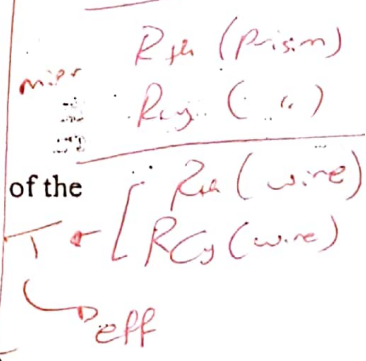 Rth (Prism)
Rcy. ( ,, )
of the
Rth (wire)
RCy (wire)
T
eff